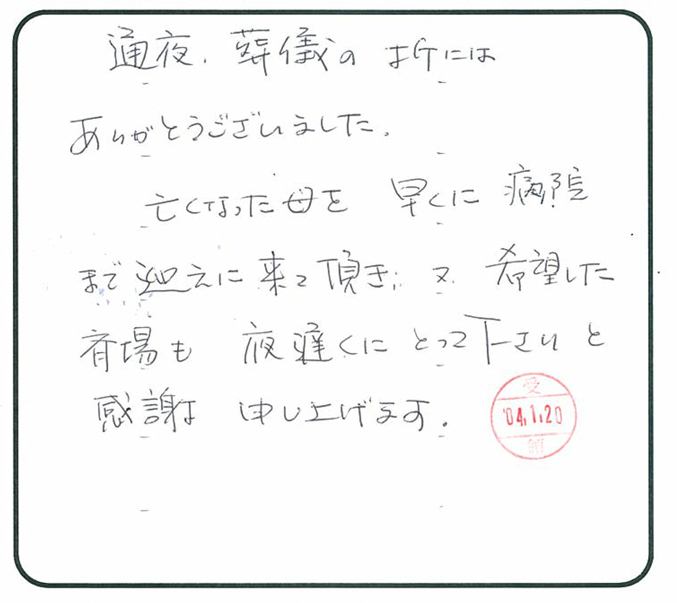 通夜、葬儀の折には
ありがとうございました。
亡くなった母を 早くに 病院
まで 迎えに 来て 頂き、又 希望した
斎場も 夜遅くに とって 下さいと
感謝は 申し上げます。
受
'04.1.20
領